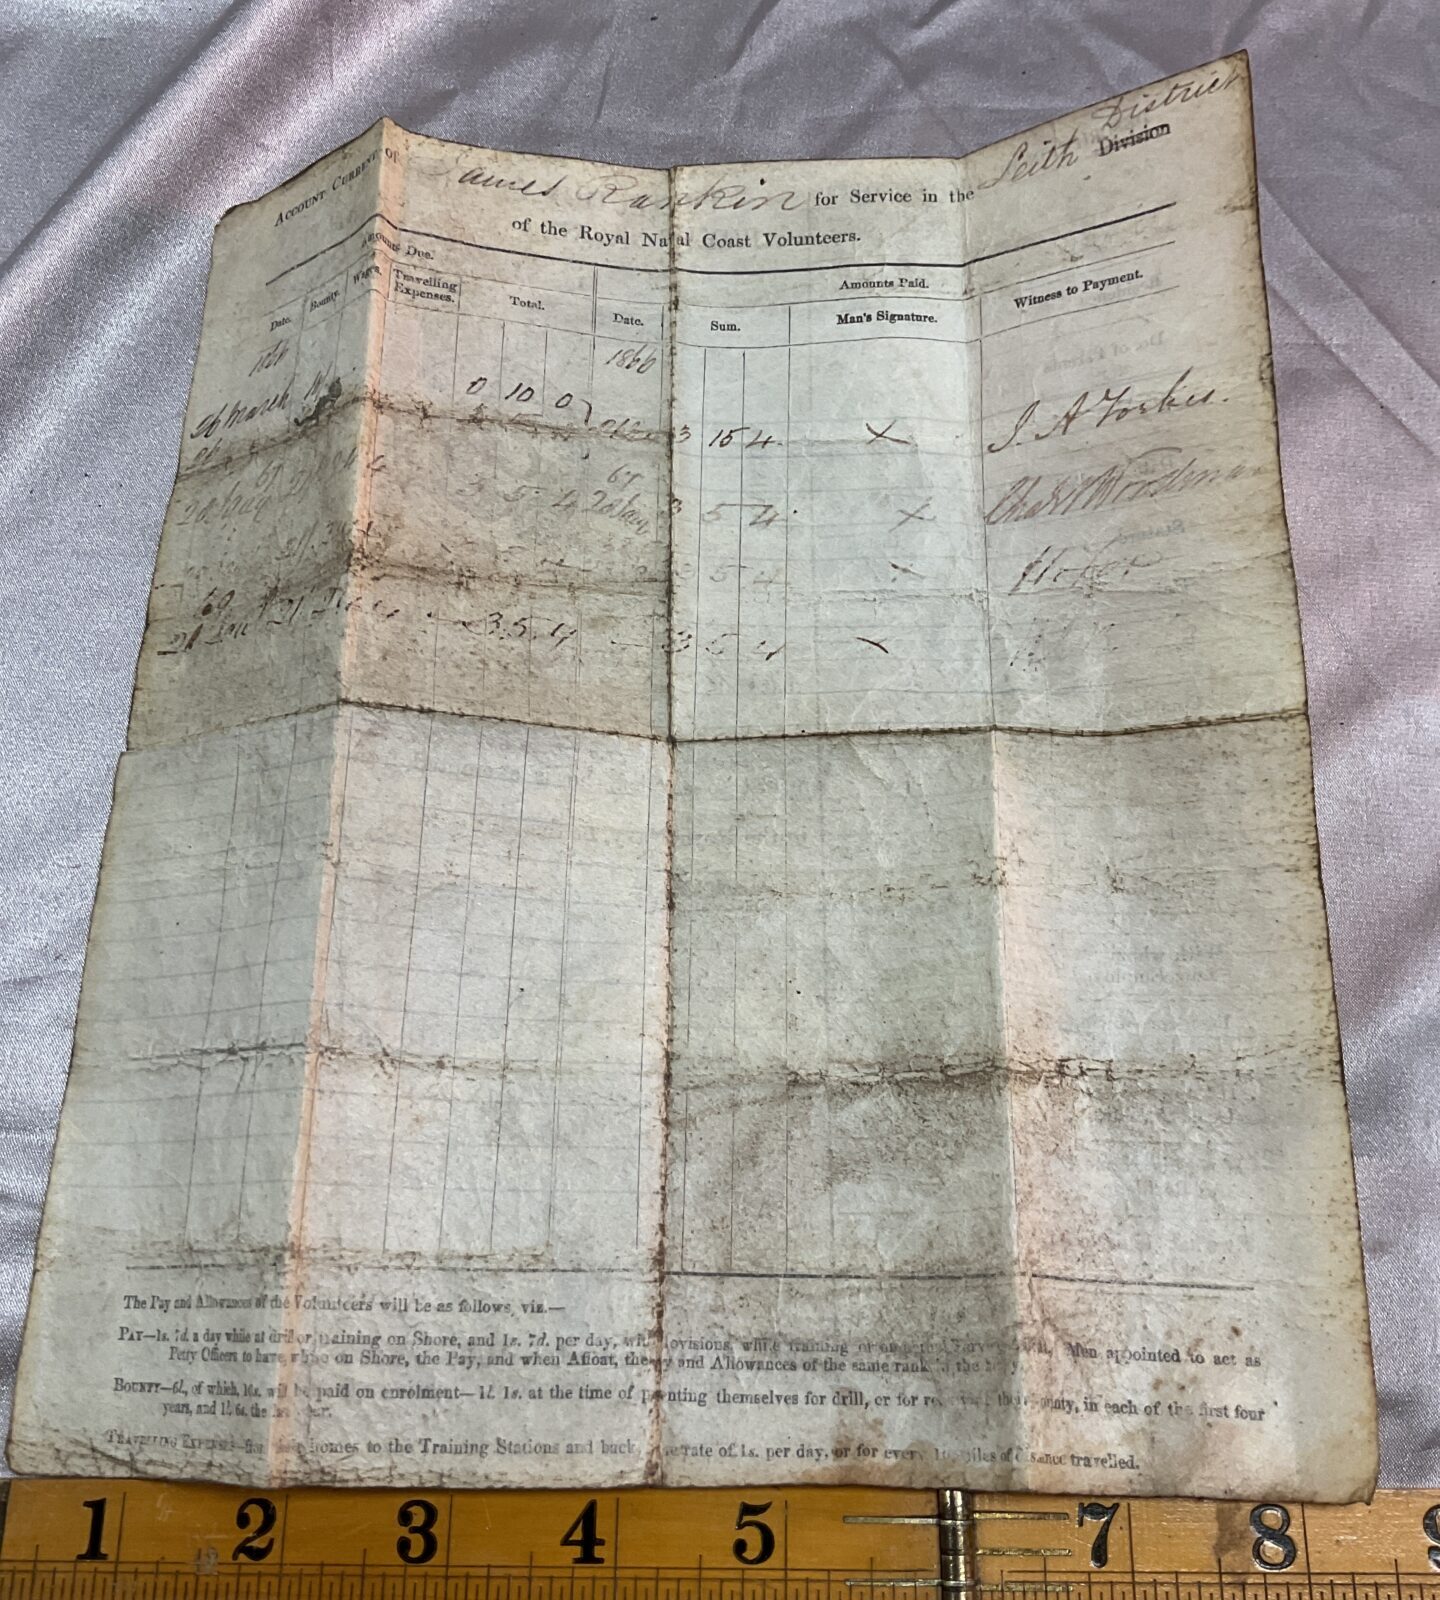 ACCOUNT CURRENT OF James Rankin for Service in the Leith District Division
of the Royal Naval Coast Volunteers.
Amounts Due.
Amounts Paid.
Date. Bounty. Wages. Travelling Expenses. Total. Date. Sum. Man's Signature. Witness to Payment.
1866 1866
26 March 10/ 0 10 0
26 3 15 4 X J. A Forbes.
67 67
20 3 5 4 20 3 5 4 X Chas Woodman
3 5 4 X
69
21 Jan 21/ 3. 5. 4 3 5 4 X
The Pay and Allowances of the Volunteers will be as follows, viz.—
PAY—1s. 7d. a day while at drill or training on Shore, and 1s. 7d. per day, with provisions, while training or Men appointed to act as
Petty Officers to have, while on Shore, the Pay, and when Afloat, the Pay and Allowances of the same rank in the
BOUNTY—6l., of which, 10s. will be paid on enrolment—1l. 1s. at the time of presenting themselves for drill, or for the Bounty, in each of the first four
years, and 1l. 6s. the last year.
TRAVELLING EXPENSES— homes to the Training Stations and back, rate of 1s. per day, or for every 10 miles of distance travelled.
1 2 3 4 5 7 8 9